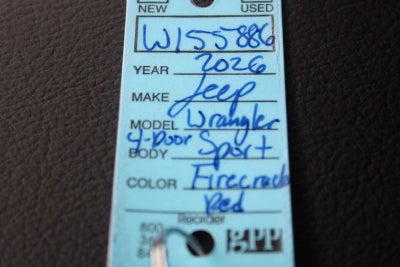 NEW USED
W155886
YEAR 2026
MAKE Jeep
MODEL Wrangler
4-Door
BODY Sport
COLOR Firecracker
Red
Reorder
800
gpp